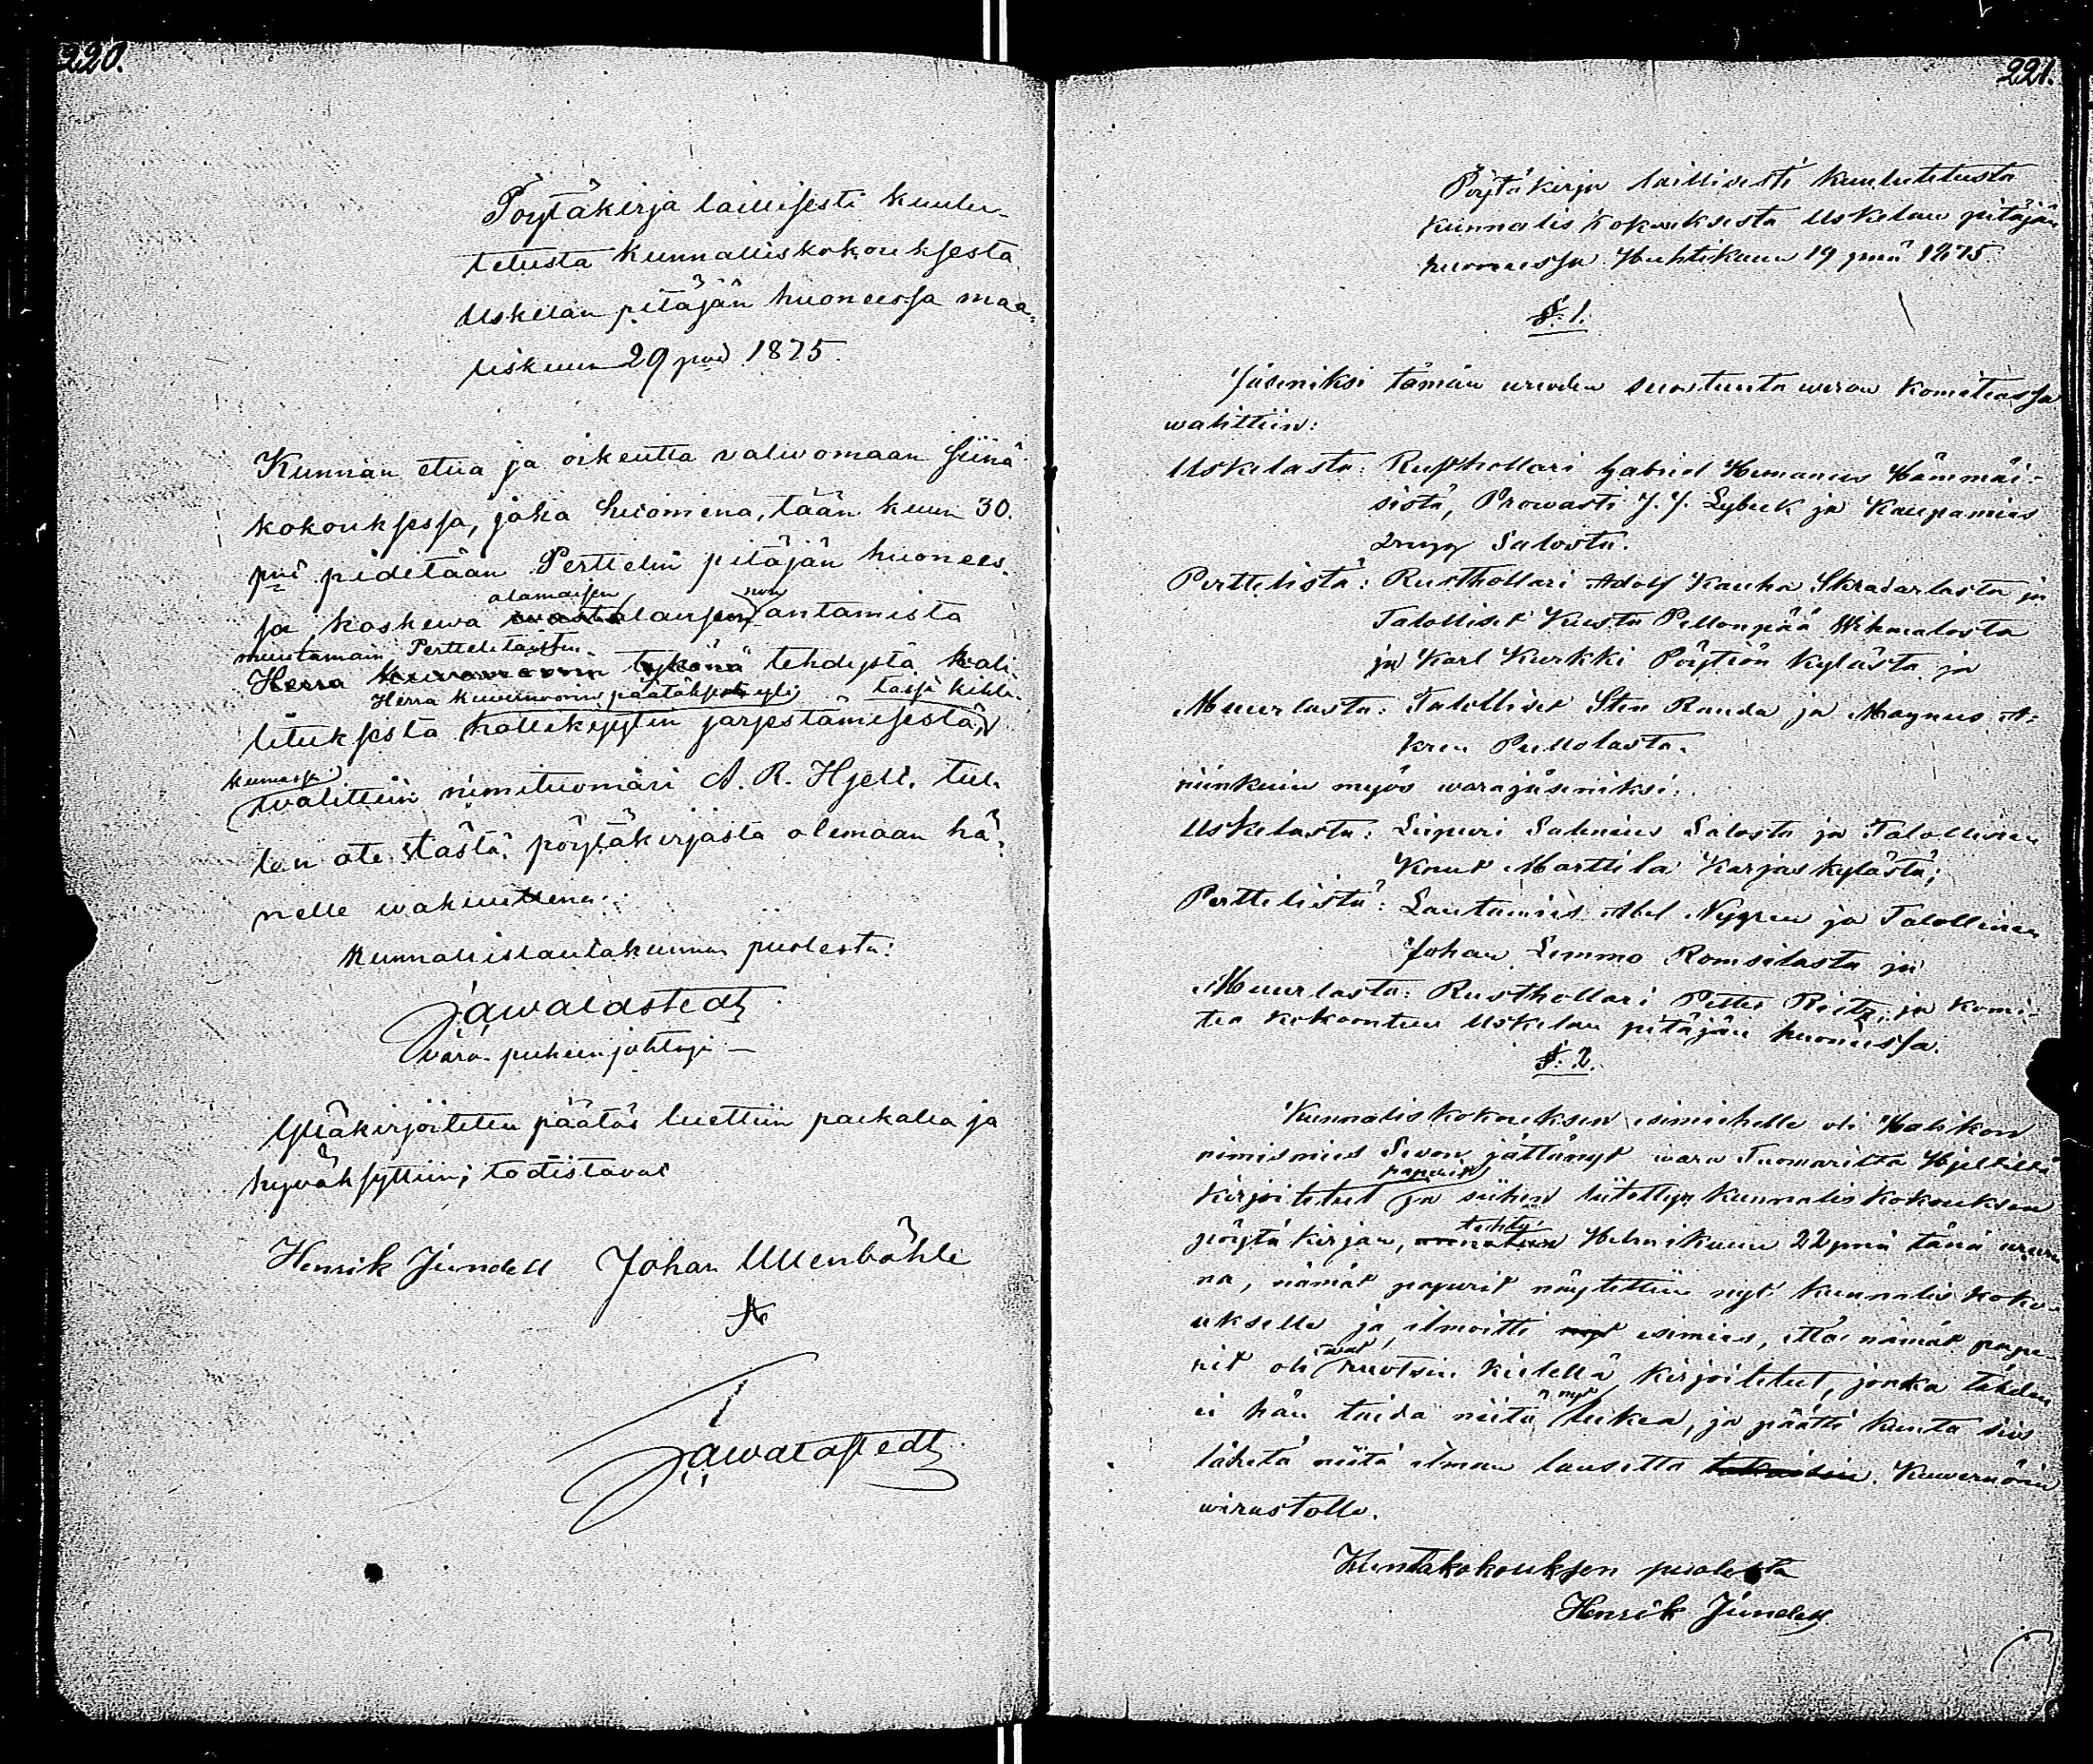 220.
Pöytäkirja laillisesti kuulu-
tetusta kunnalliskokouksesta
Uskelan pitäjän huoneessa maa-
liskuun 29 pnä 1875.
Kunnan etua ja oikeutta valwomaan siinä
kokouksessa, joka huomena, tään kuun 30.
pnä pidetään Perttelin pitäjän huonees-
sa, koskewa alamaisen lausunnon antamista
muutamain Pertteliläisten
Herra tehdystä wali-
Herra Kuvernöörin päätöksestä yli
tuksesta kollikyytin järjestämisestä,
kumassa
walittiin nimituomäri A. R. Hjelt. tul-
len ote tästä pöytäkirjasta olemaan hä-
nelle wakuutena.
Kunnallislautakunnan puolesta:
J a waldstedt
vara-puheenjohtaja –
Ylläkirjoitettu päätös luettiin paikalla ja
hyväksyttiin; todistavat
Henrik Jundell Johan Ullenbåhle
Jawaldstedt
221.
Pöytäkirja laillisesti kuulutetusta
kunnalis kokouksesta Uskelan pitäjän
huoneessa Huhtikuun 19 pnä 1875
§. 1.
Jäseniksi tämän wuoden suostunta weron komiteassa
walittiin:
Uskelasta: Rusthollari Gabriel Hemanus Hämmäi-
sistä, Prowasti J. J. Lybeck ja Kaupamies
Salosta.
Perttelistä: Rusthollari Adolf Kauha Skradarlasta ja
Talolliset Kusta Pellonpää Wihmalosta
ja Karl Kurkki Pöytiön kylästä ja
Muurlasta: Talolliset Sten Rauda ja Magnus A-
kren Pullolasta.
niinkuin myös warajäseniksi:
Uskelasta: Leipuri Salenius Salosta ja Talollinen
Knut Marttila Karjaskylästä;
Perttelistä: Lautamies Abel Nygren ja Talollinen
Johan Lemmo Romsilasta ja
Muurlasta: Rusthollari Petter Reitz, ja komi-
tea kokoontuu Uskelan pitäjän huoneessa.
§. 2.
Kunnaliskokouksen esimiehelle oli Halikon
nimismies Sevon jättänyt wara Tuomarilta Hjeltiltä
paperit
kirjoitetut ja siihen liitettyn kunnalis kokouksen
tehty
pöytäkirjan, Helmikuun 22 pnä tänä wuon-
na, nämät paperit näytettiin nyt kunnalis koko-
ukselle ja ilmoitti nyt esimies, että nämät pape-
rit oli wat ruotsin kielellä kirjoitetut, jonka tähden
ei hän taida niitä nyt lukea, ja päätti kunta siis
lähetä niitä ilman lausetta takaisin. Kuwernörin
wirastolle.
Kuntakokouksen puolesta
Henrik Jundell